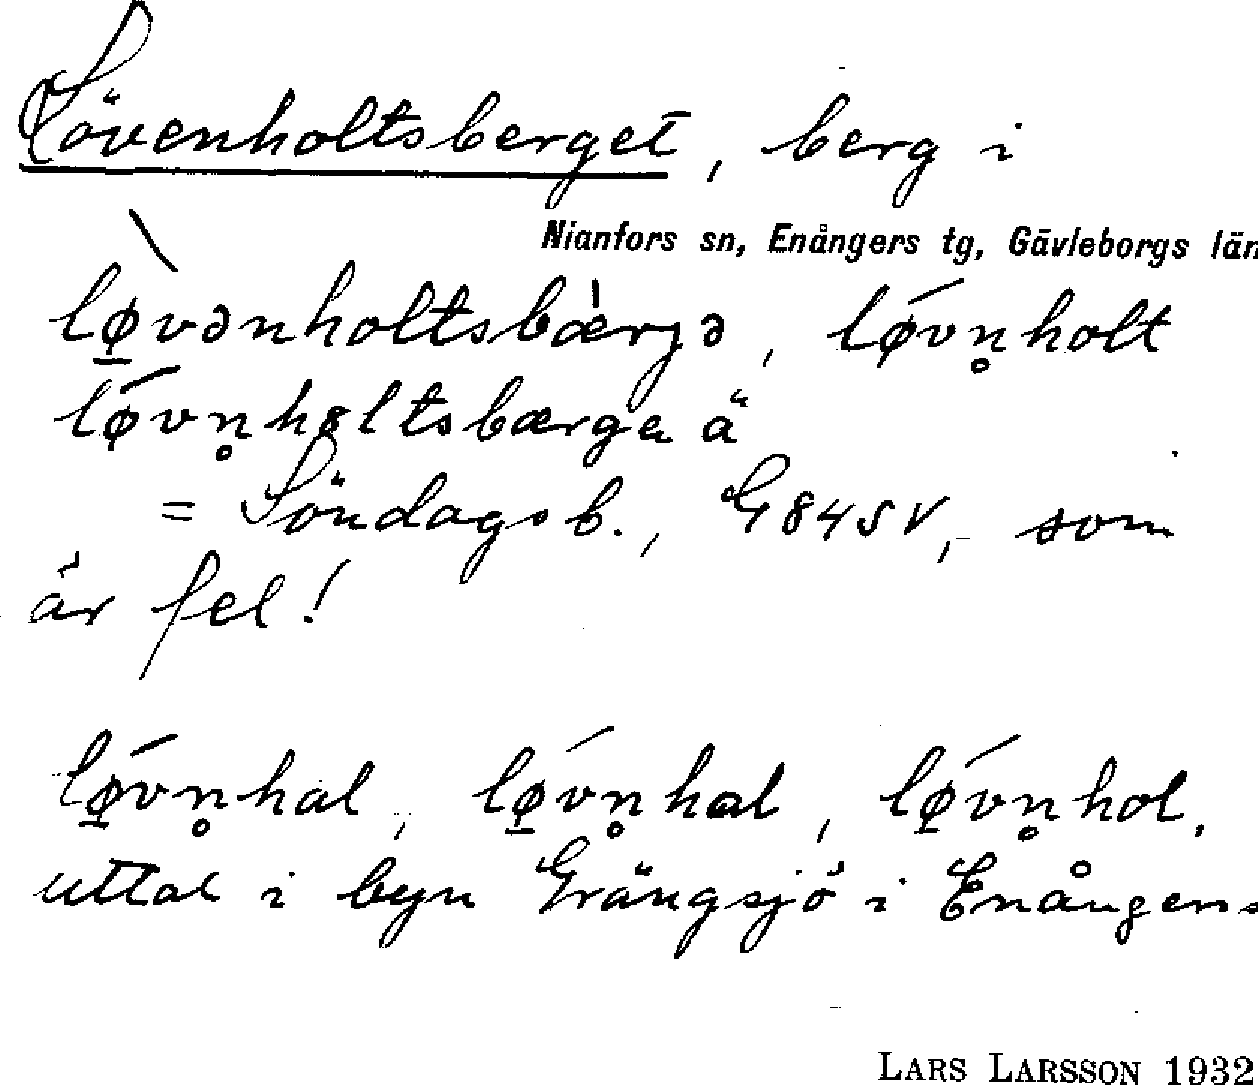 Lövenholtsberget, berg i
Nianfors sn, Enångers tg, Gävleborgs län
lø̲̀vənholtsbæ̀rjə, lǿvn̥holt
lǿvn̥holtsbærga ä
= Söndagsb., G84SV, som
är fel!
lǿ̲vn̥hal, lǿ̲vn̥hal, lǿ̲vn̥hol,
uttal i byn Grängsjö i Enångers
LARS LARSSON 1932